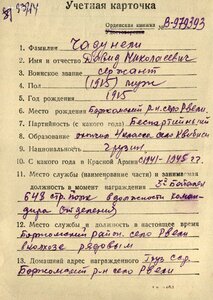 Учетная карточка
Орденская книжка В-979393
1. Фамилия Чадунели
2. Имя и отчество Давид Николаевич
3. Воинское звание сержант
4. Пол (1915) муж
5. Год рождения 1915
6. Место рождения Боржомский р-н село Рвели
7. Партийность (с какого года) Беспартийный
8. Образование окончил 4 класса село Квибиси
9. Национальность Грузин
10. С какого года в Красной Армии (1941-1945 гг.
11. Место службы (наименование части) и занимаемая
должность в момент награждения 3й Батальон
648 стр. полк в должности коман-
дира отделения
12. Место службы и должность в настоящее время
Боржомский район. село Рвели
в колхозе рядовым
13. Домашний адрес награжденного Груз сср.
Боржомский р-н село Рвели